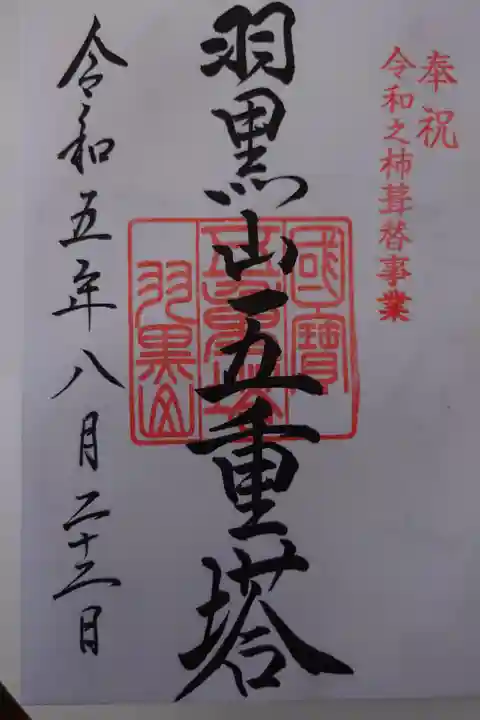 奉祝
令和之杮葺替事業
羽黒山五重塔
國寶
五重塔
羽黒山
令和五年八月二十二日